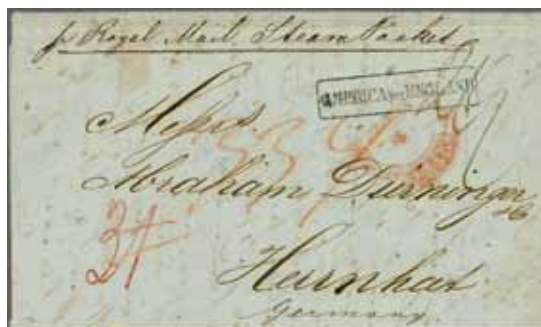 pr Royal Mail Steam Packet
AMERICA per ENGLAND
Messrs.
Abraham Durninger
Herrnhut
Germany.